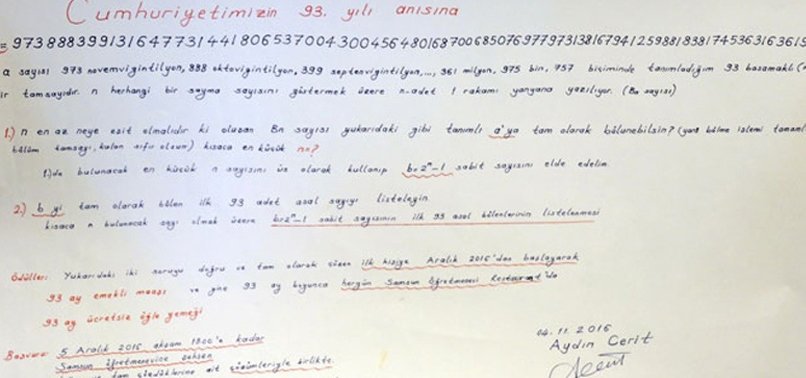 Cumhuriyetimizin 93. yılı anısına
= 973888399131647731441806537004300456480168700685076977973138167941259881838174536316361
a sayısı 973 novemvigintilyon, 888 oktovigintilyon, 399 septenvigintilyon,..., 361 milyon, 975 bin, 757 biçiminde tanımladığım 93 basamaklı
bir tamsayıdır. n herhangi bir sayma sayısını göstermek üzere n-adet 1 rakamı yanyana yazılıyor. (Bn sayısı)
1.) n en az neye eşit olmalıdır ki oluşan Bn sayısı yukarıdaki gibi tanımlı a'ya tam olarak bölünebilsin? (yani bölme işlemi
bölüm tamsayı, kalan sıfır olsun) kısaca en küçük n=?
1.)de bulunacak en küçük n sayısını üs olarak kullanıp b=2ⁿ-1 sabit sayısını elde edelim.
2.) b yi tam olarak bölen ilk 93 adet asal sayıyı listeleyin
kısaca n bulunacak sayı olmak üzere b=2ⁿ-1 sabit sayısının ilk 93 asal bölenlerinin listelenmesi
Ödüller: Yukarıdaki iki soruyu doğru ve tam olarak çözen ilk kişiye Aralık 2016'dan başlayarak
93 ay emekli maaşı ve yine 93 ay boyunca hergün Samsun Öğretmenevi Restaurant'da
93 ay ücretsiz öğle yemeği
Başvuru: 5 Aralık 2016 akşam 1800'e kadar
Samsun öğretmenevine şahsen
çözümleriyle birlikte.
04.11.2016
Aydın Cerit